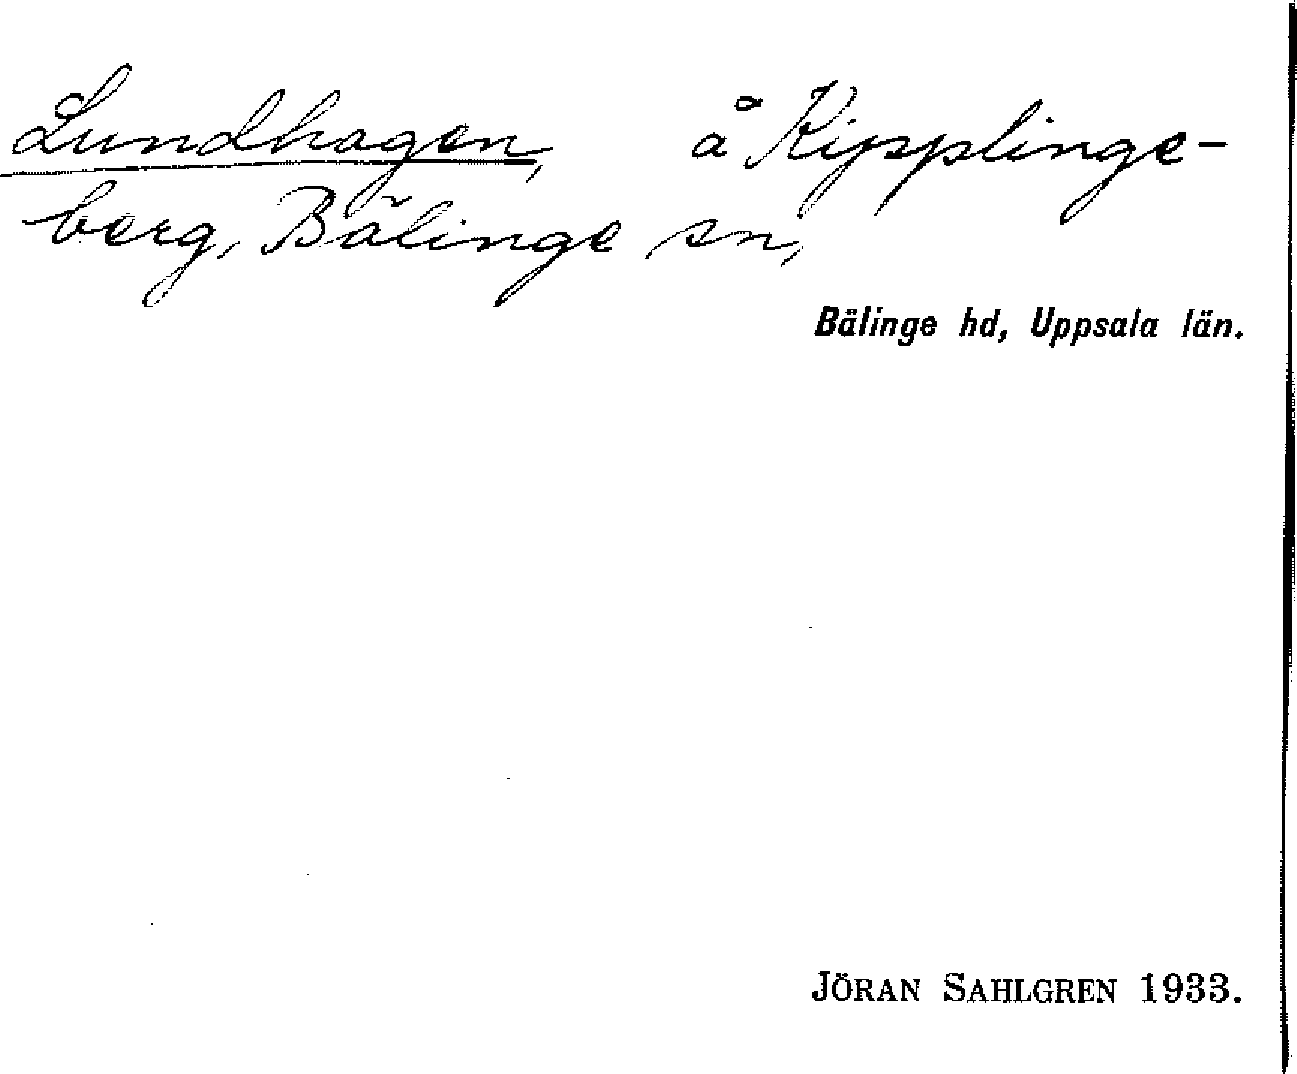 Lundhagen, å Kipplinge-
berg, Bälinge sn,
Bälinge hd, Uppsala län.
JÖRAN SAHLGREN 1933.